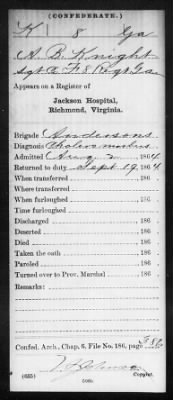 (CONFEDERATE.)
K 8 Ga
A. B. Knight
Sgt Co F 8 Regt Ga.
Appears on a Register of
Jackson Hospital,
Richmond, Virginia.
Brigade Andersons
Diagnosis Cholera morbus
Admitted Aug 2, 1864
Returned to duty Sept. 19, 1864
When transferred , 186 .
Where transferred
When furloughed , 186 .
Time furloughed
Discharged , 186 .
Deserted , 186 .
Died , 186 .
Taken the oath , 186 .
Paroled , 186 .
Turned over to Prov. Marshal , 186 .
Remarks:
Confed. Arch., Chap. 6, File No. 186, page
(635)
Copyist.